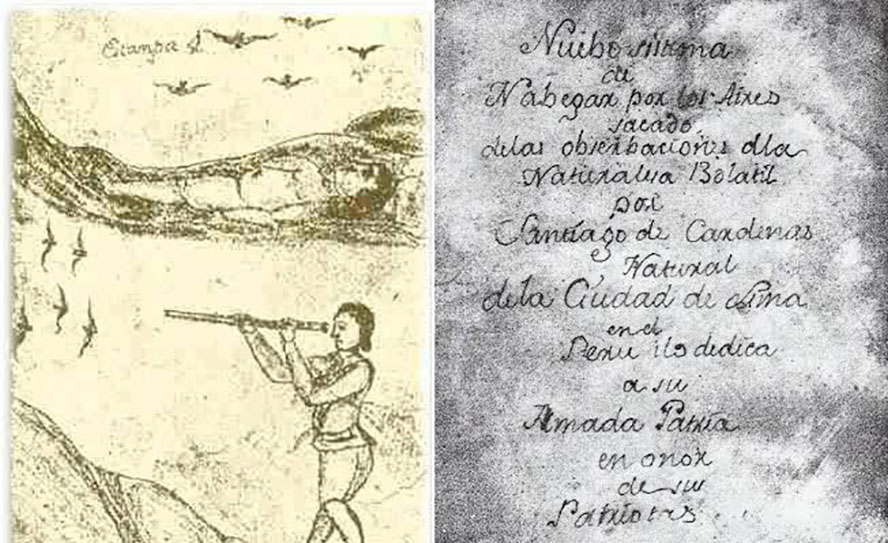 Estampa 1.
Nuibo sistema
de
Nabegar por los Aires
sacado
delas obserbaciones dla
Naturalesa Bolatil
por
Santiago de Cardenas
Natural
dela Ciudad de Lima
en el
Peru i lo dedica
a su
Amada Patria
en onor
de sus
Patriotas